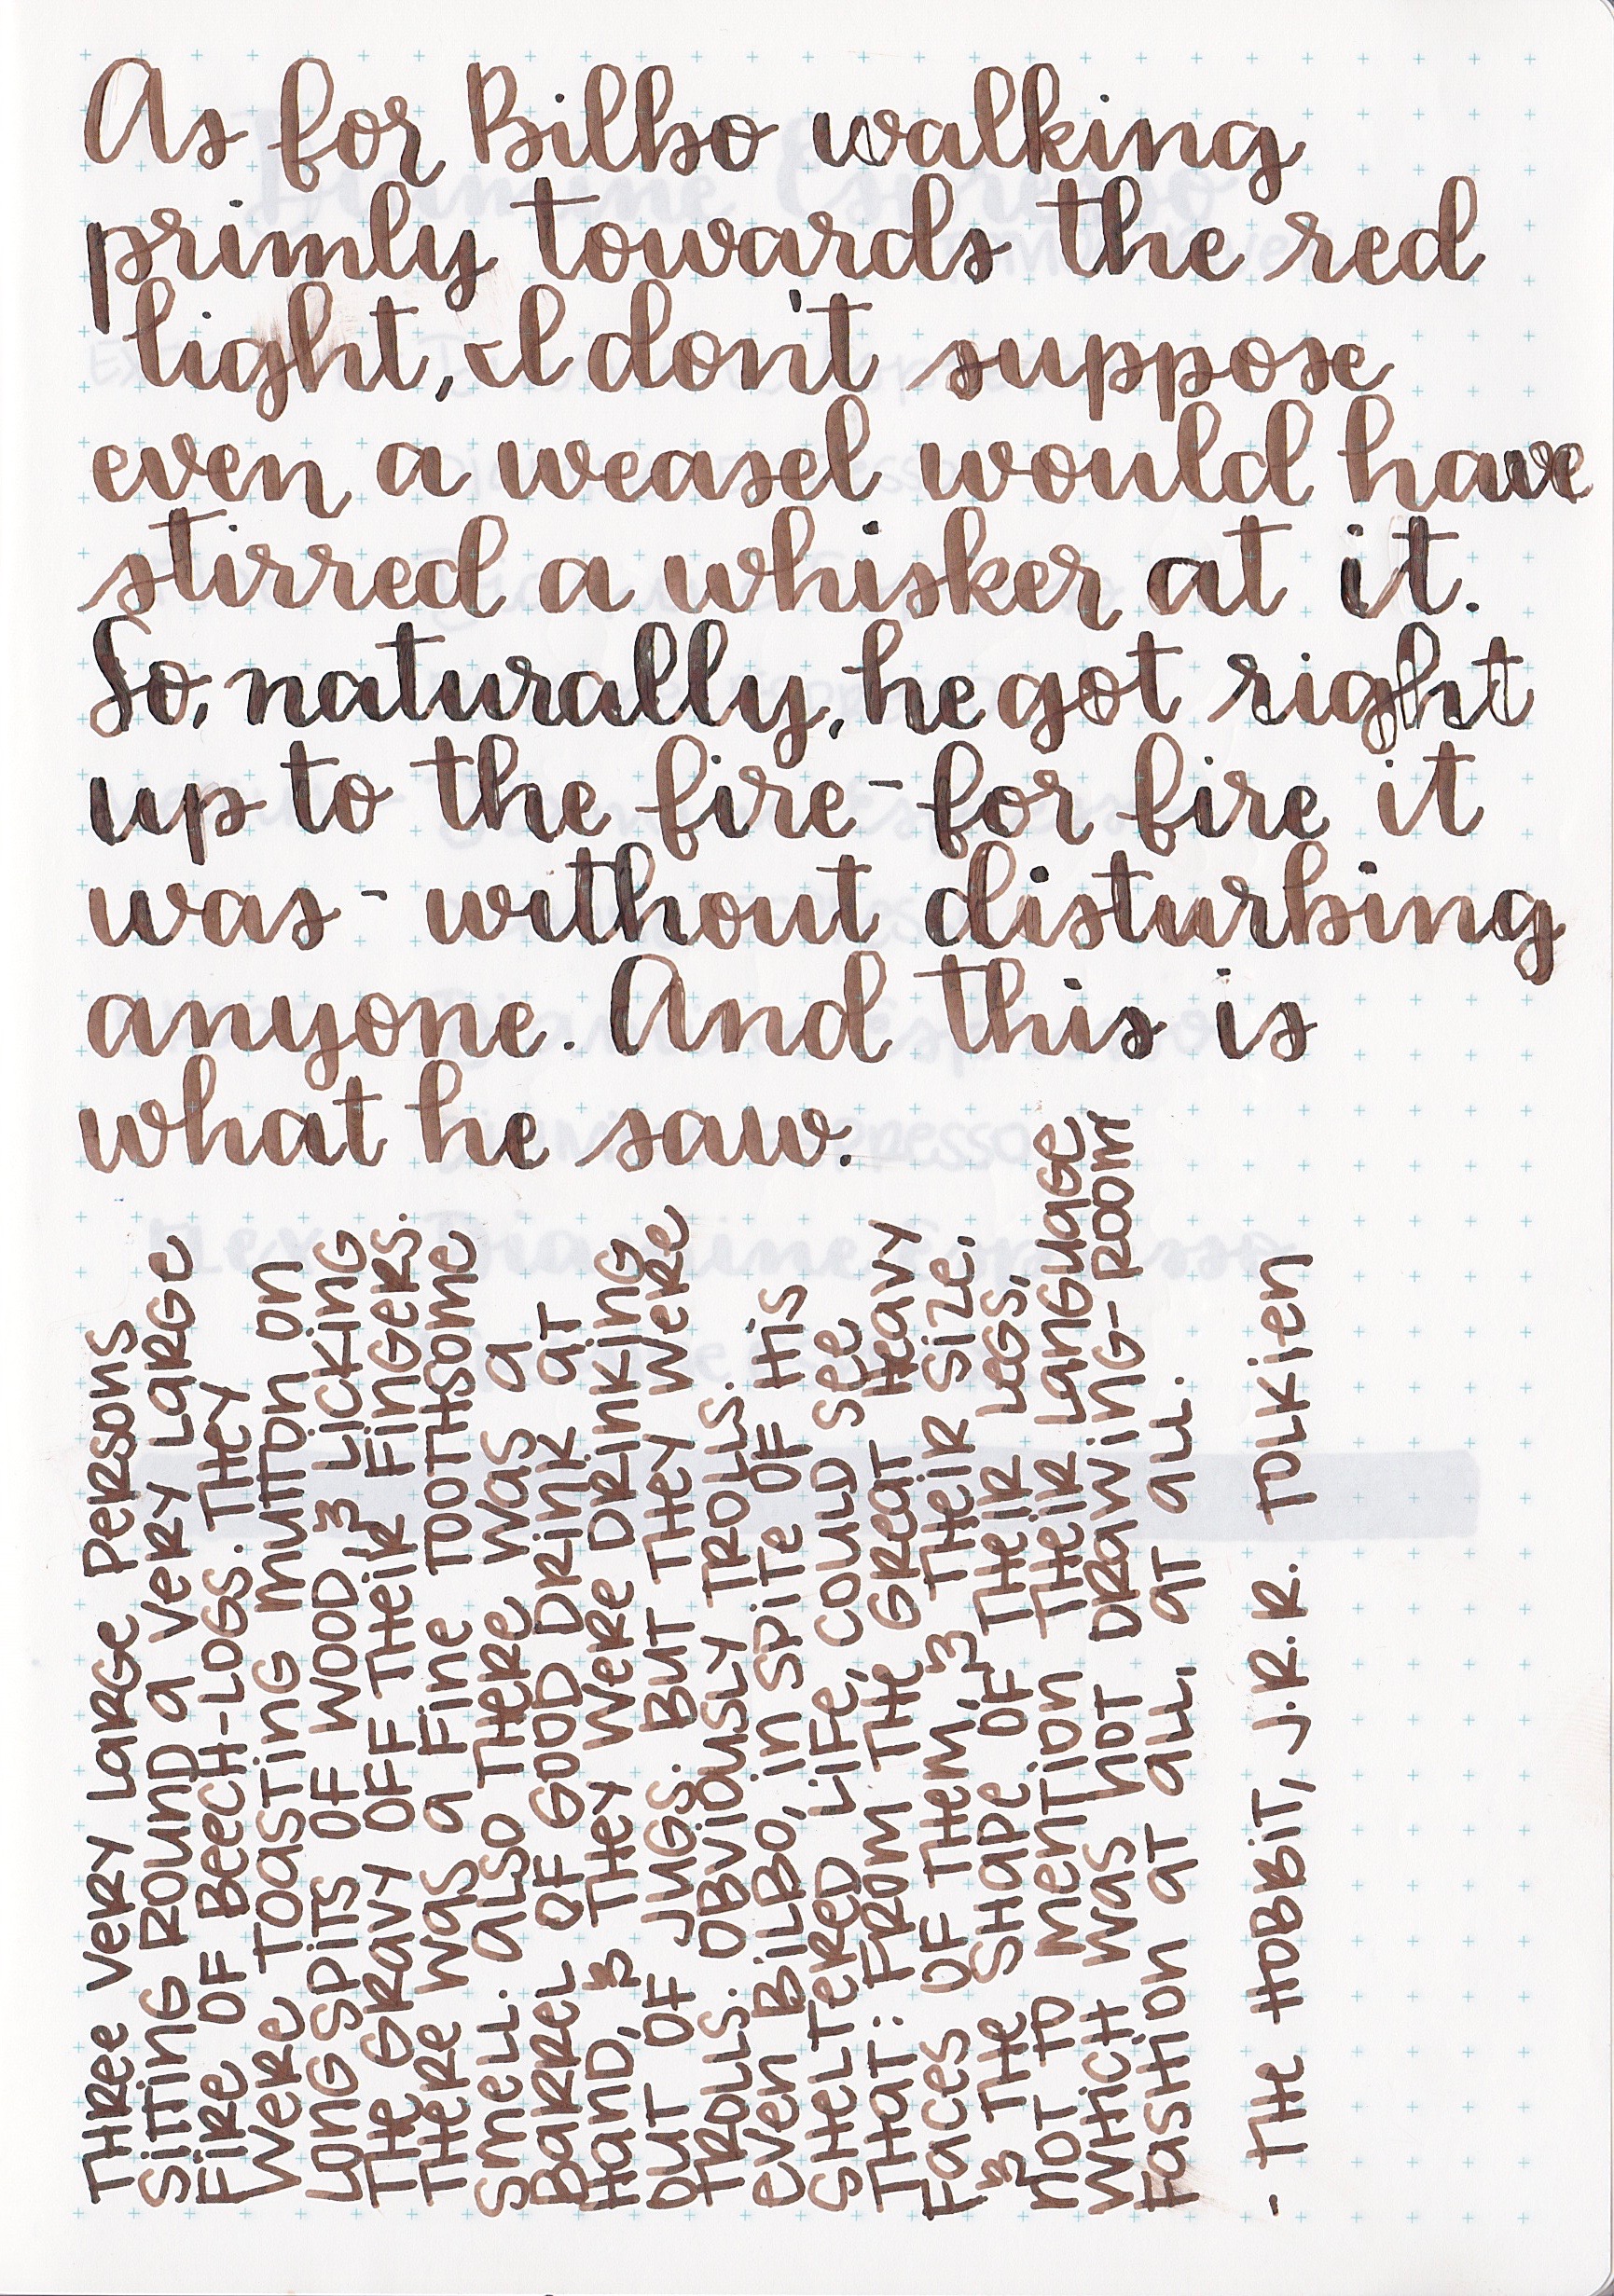 As for Bilbo walking
primly towards the red
light, I don't suppose
even a weasel would have
stirred a whisker at it.
So, naturally, he got right
up to the fire - for fire it
was - without disturbing
anyone. And this is
what he saw.
THREE VERY LARGE PERSONS
SITTING ROUND A VERY LARGE
FIRE OF BEECH-LOGS. THEY
WERE TOASTING MUTTON ON
LONG SPITS OF WOOD & LICKING
THE GRAVY OFF THEIR FINGERS.
THERE WAS A FINE TOOTHSOME
SMELL. ALSO THERE WAS A
BARREL OF GOOD DRINK AT
HAND, & THEY WERE DRINKING
OUT OF JUGS. BUT THEY WERE
TROLLS. OBVIOUSLY TROLLS.
EVEN BILBO, IN SPITE OF HIS
SHELTERED LIFE, COULD SEE
THAT: FROM THE GREAT HEAVY
FACES OF THEM, & THEIR SIZE,
& THE SHAPE OF THEIR LEGS,
NOT TO MENTION THEIR LANGUAGE
WHICH WAS NOT DRAWING-ROOM
FASHION AT ALL, AT ALL.
- THE HOBBIT, J.R.R. TOLKIEN